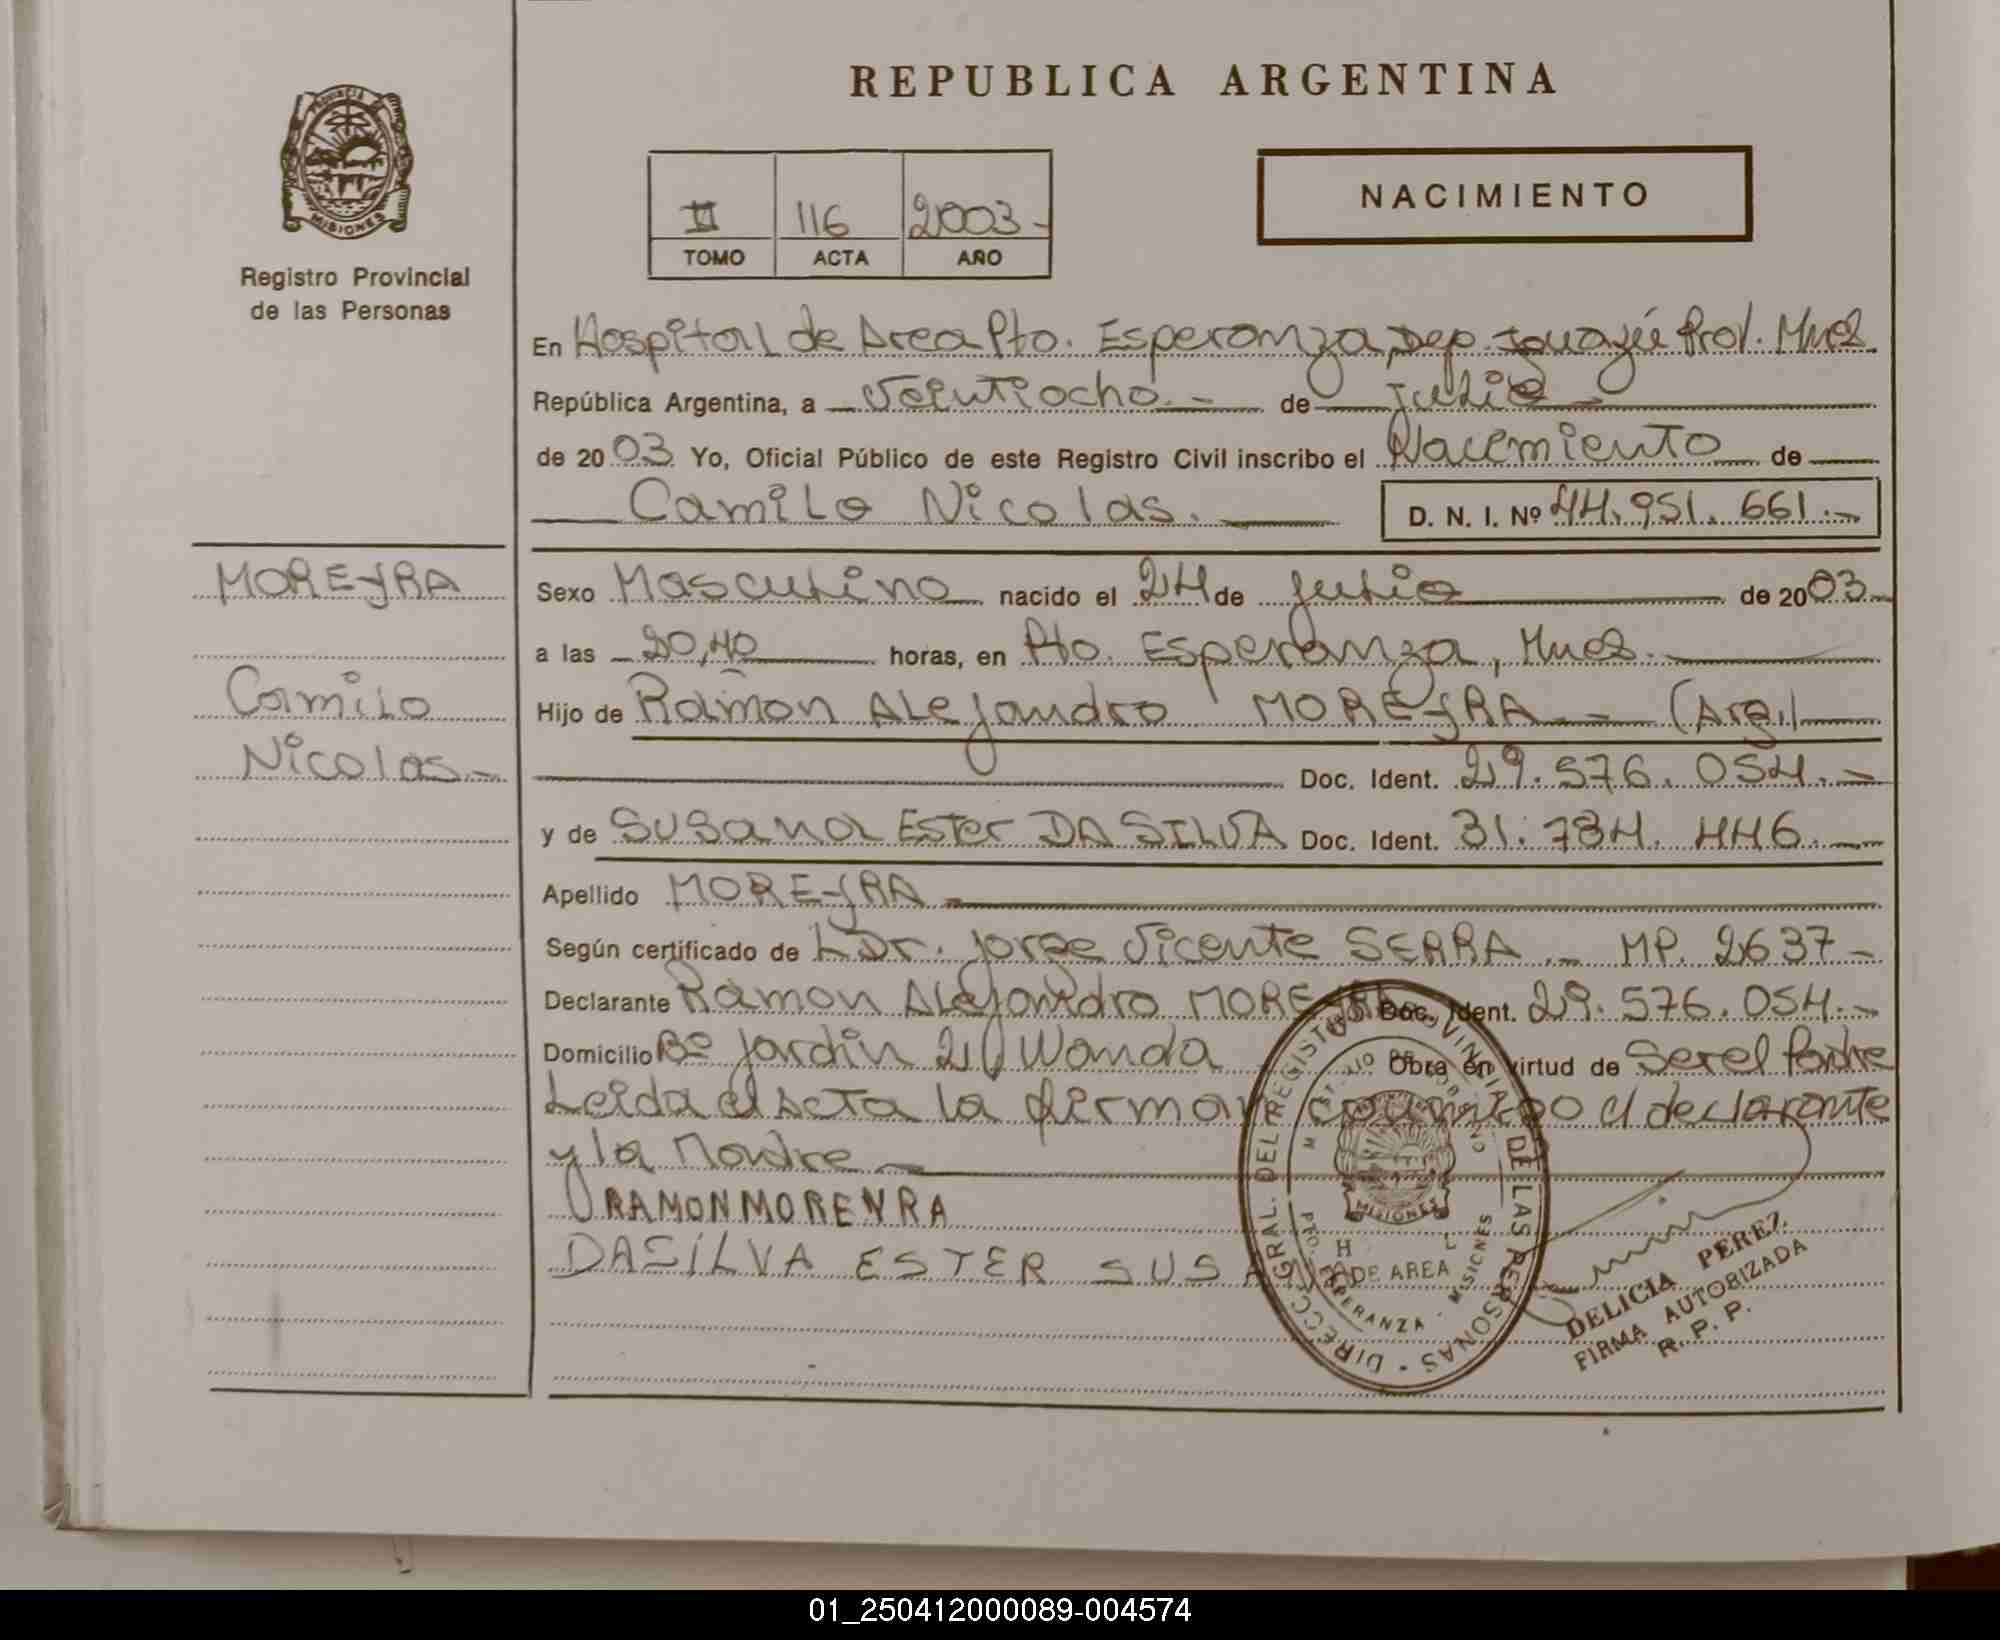 REPUBLICA ARGENTINA
PROVINCIA DE
MISIONES
Registro Provincial
de las Personas
II 116 2003-
TOMO ACTA AÑO
NACIMIENTO
En Hospital de Area Pto. Esperanza, Dep. Iguazú Prov. Mnes
República Argentina, a Veintiocho.- de Julio-
de 2003 Yo, Oficial Público de este Registro Civil inscribo el Nacimiento de
Camilo Nicolas. D. N. I. Nº 44.951.661.-
MOREYRA
Camilo
Nicolas-
Sexo Masculino nacido el 24 de Julio de 2003.
a las 20,40 horas, en Pto. Esperanza, Mnes.
Hijo de Ramón Alejandro MOREYRA - (Arg.)
Doc. Ident. 29.576.054.-
y de Susana Ester DA SILVA Doc. Ident. 31.784.446.
Apellido MOREYRA
Según certificado de Dr. Jorge Vicente SERRA.- MP. 2637-
Declarante Ramon Alejandro MOREYRA Doc. Ident. 29.576.054.-
Domicilio Bº Jardin Wanda Obra en virtud de Ser el Padre
Leida el Acta la firman conmigo el declarante
y la Madre
RAMON MOREYRA
DASILVA ESTER SUSANA
DIRECC. GRAL. DEL REGISTRO PROVINCIAL DE LAS PERSONAS
MINISTERIO DE GOBIERNO
MISIONES
H L
DE AREA
PTO. ESPERANZA - MISIONES
DELICIA PEREZ
FIRMA AUTORIZADA
R. P. P.
01_250412000089-004574